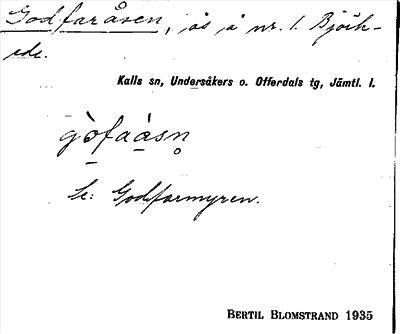 Godfaråsen, ås å nr. 1. Björk-
ede.
Kalls sn, Undersåkers o. Offerdals tg, Jämtl. l.
gòfaàsn̥
Se: Godfarmyren.
BERTIL BLOMSTRAND 1935